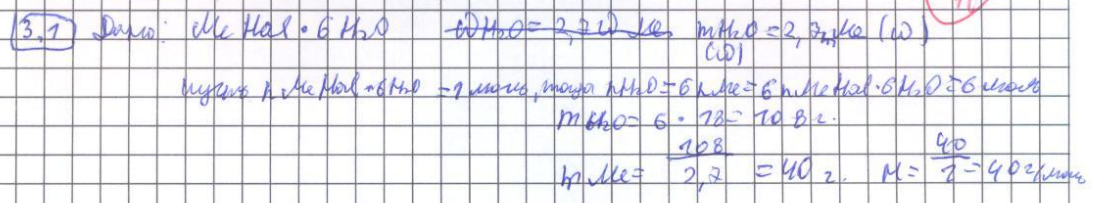 3.1 Дано: MeHal · 6H₂O ωH₂O = 2,7ω Me mH₂O = 2,7mMe (ω)
(ω)
пусть n MeHal · 6H₂O = 1 моль, тогда nH₂O = 6nMe = 6nMeHal · 6H₂O = 6 моль
mH₂O = 6 · 18 = 108 г.
m Me = 108/2,7 = 40 г. M = 40/1 = 40 г/моль